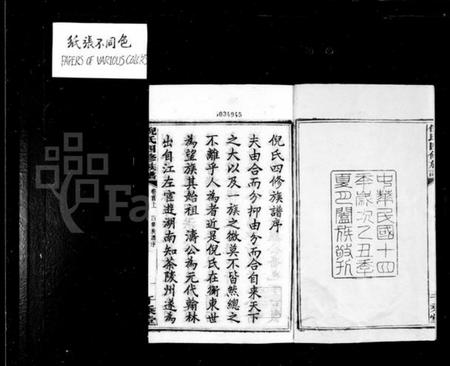 紙張不同色
PAPERS OF VARIOUS COLORS
1034945
中華民國十四
年歲次乙丑季
夏上闔族敬刊
倪氏四修族譜序
夫由合而分抑由分而合自來天下
之大以及一族之微莫不皆然總之
不離乎人為者近是倪氏在衡東世
為望族其始祖濤公為元代翰林
出自江左宦遊湖南知茶陵州遂為
倪氏四修族譜